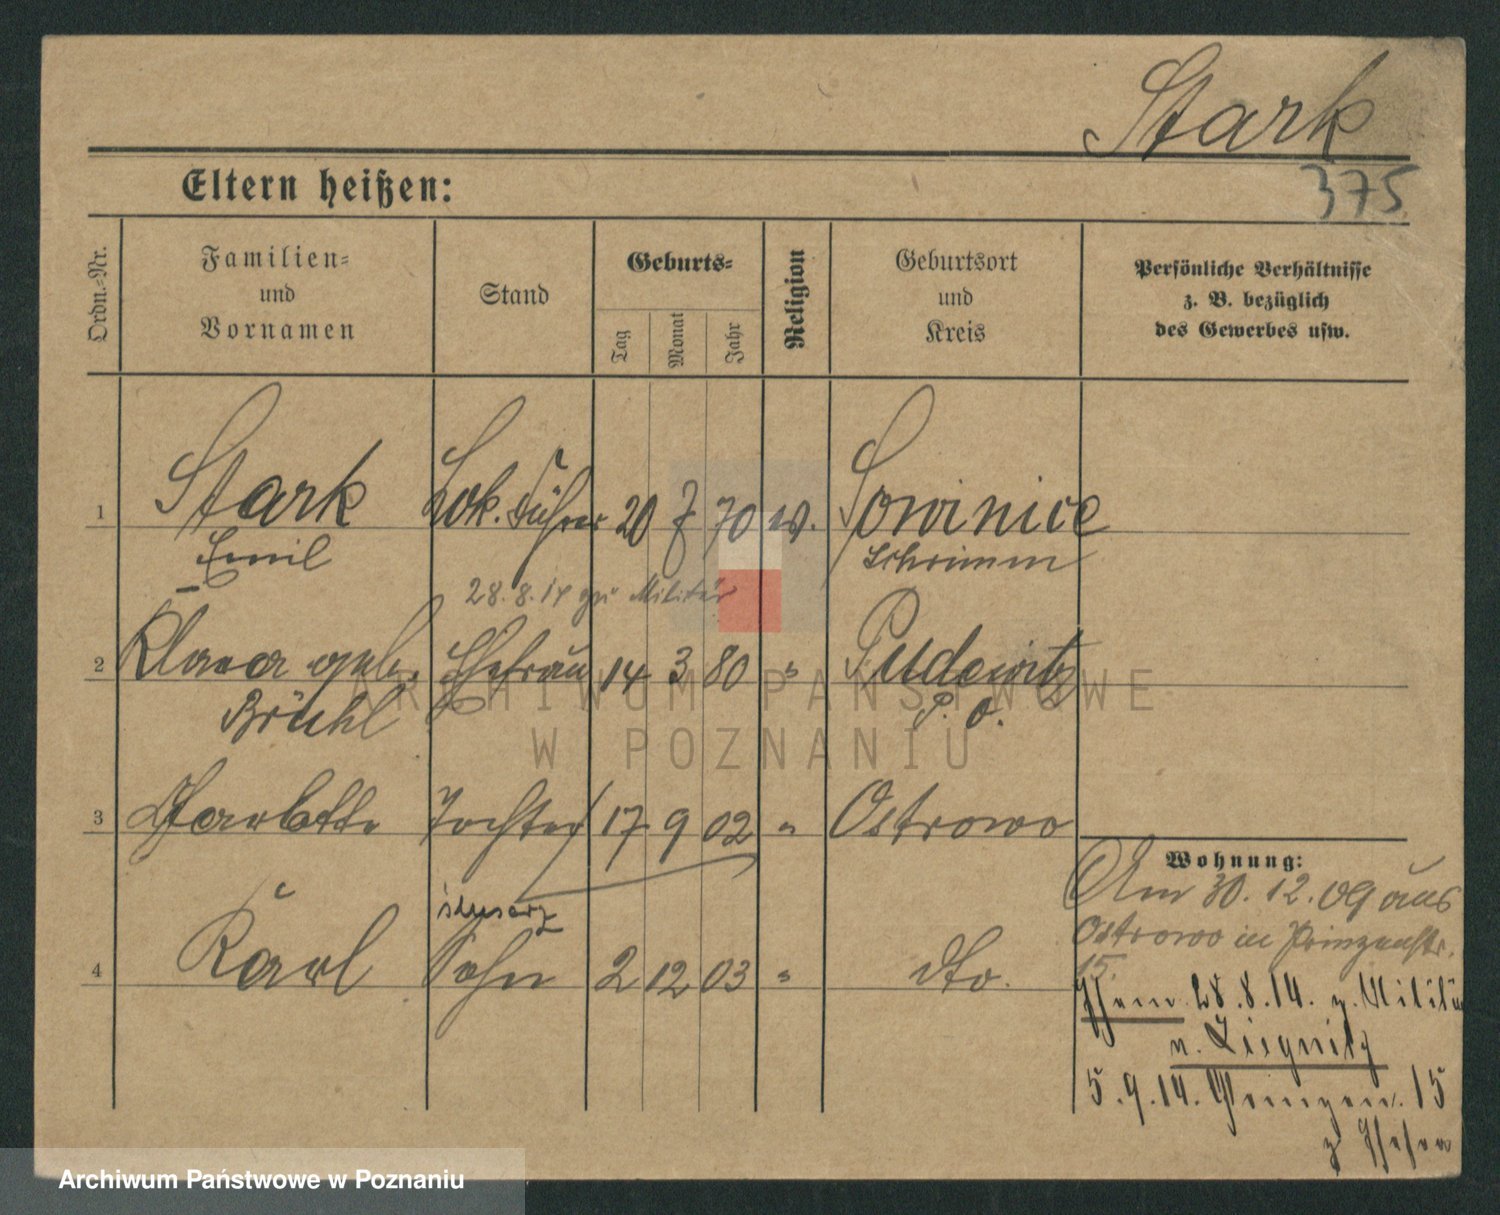 Stark
375
Eltern heißen:
Ordn.-Nr.
Familien-
und
Vornamen
Stand
Geburts-
Tag
Monat
Jahr
Religion
Geburtsort
und
Kreis
Persönliche Verhältnisse
z. B. bezüglich
des Gewerbes usw.
1 Stark Lok. Führer 20 7 70 Sowinice
Emil Schrimm
28. 8. 14 zu Militär
2 Klara geb. Ehefrau 14 3 80 " Pudewitz
Brühl P. O.
ARCHIWUM PAŃSTWOWE
W POZNANIU
3 Charlotte Tochter 17 9 02 " Ostrowo
Wohnung:
Am 30. 12. 09 aus
Ostrowo in Prinzenstr.
15.
4 Karl Sohn 2 12 03 " dto.
Ehem. 28. 8. 14. z. Militär
n. Liegnitz
5. 9. 14. Prinzen. 15
z
Archiwum Państwowe w Poznaniu